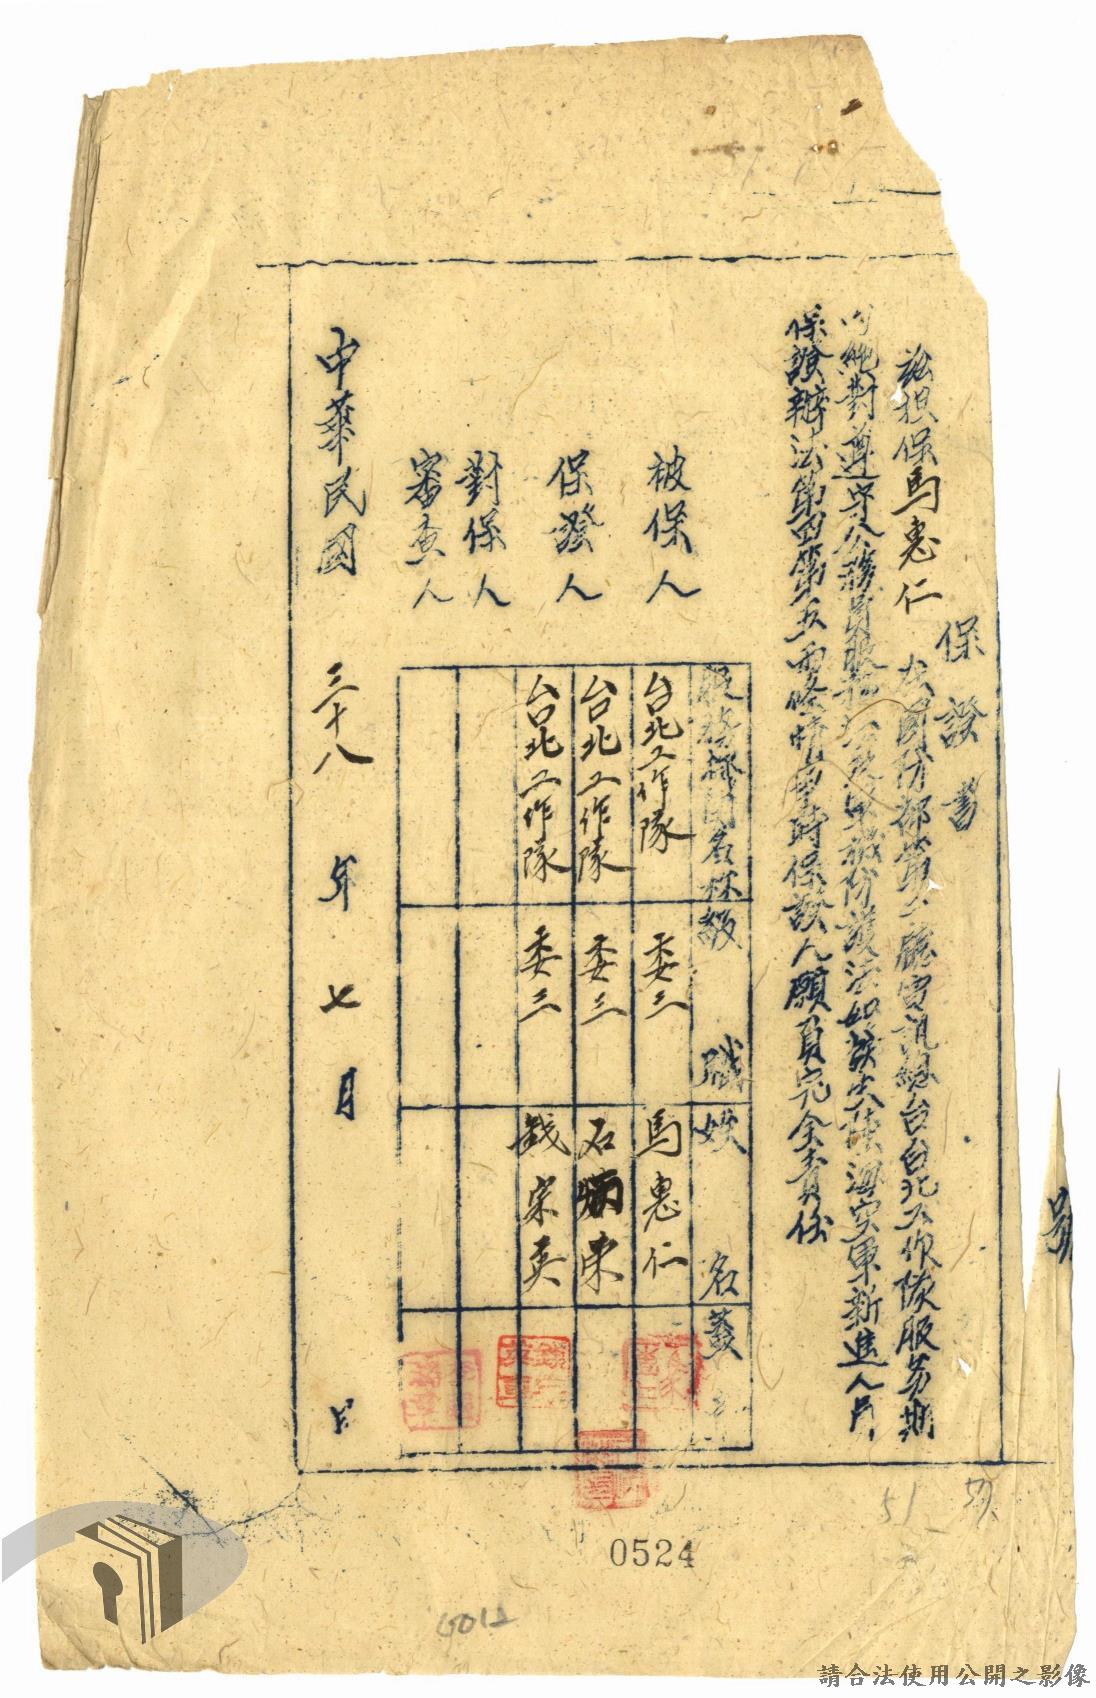 號
保證書
茲担保馬惠仁 在國防部第二廳電訊總台台北工作隊服务期
內絕對遵守公務員服務法及軍機防護法如發生陸海空軍新進人員
保證辦法第四第五兩條情事時保證人願負完全責任
服務機関名称級 職 姓 名 蓋
被保人 台北工作隊 委三 馬惠仁
保證人 台北工作隊 委三 石炳荣
台北工作隊 委三 錢宗英
對保人
審查人
中華民國 三十八 年 七 月 日
51
0524
6012
請合法使用公開之影像